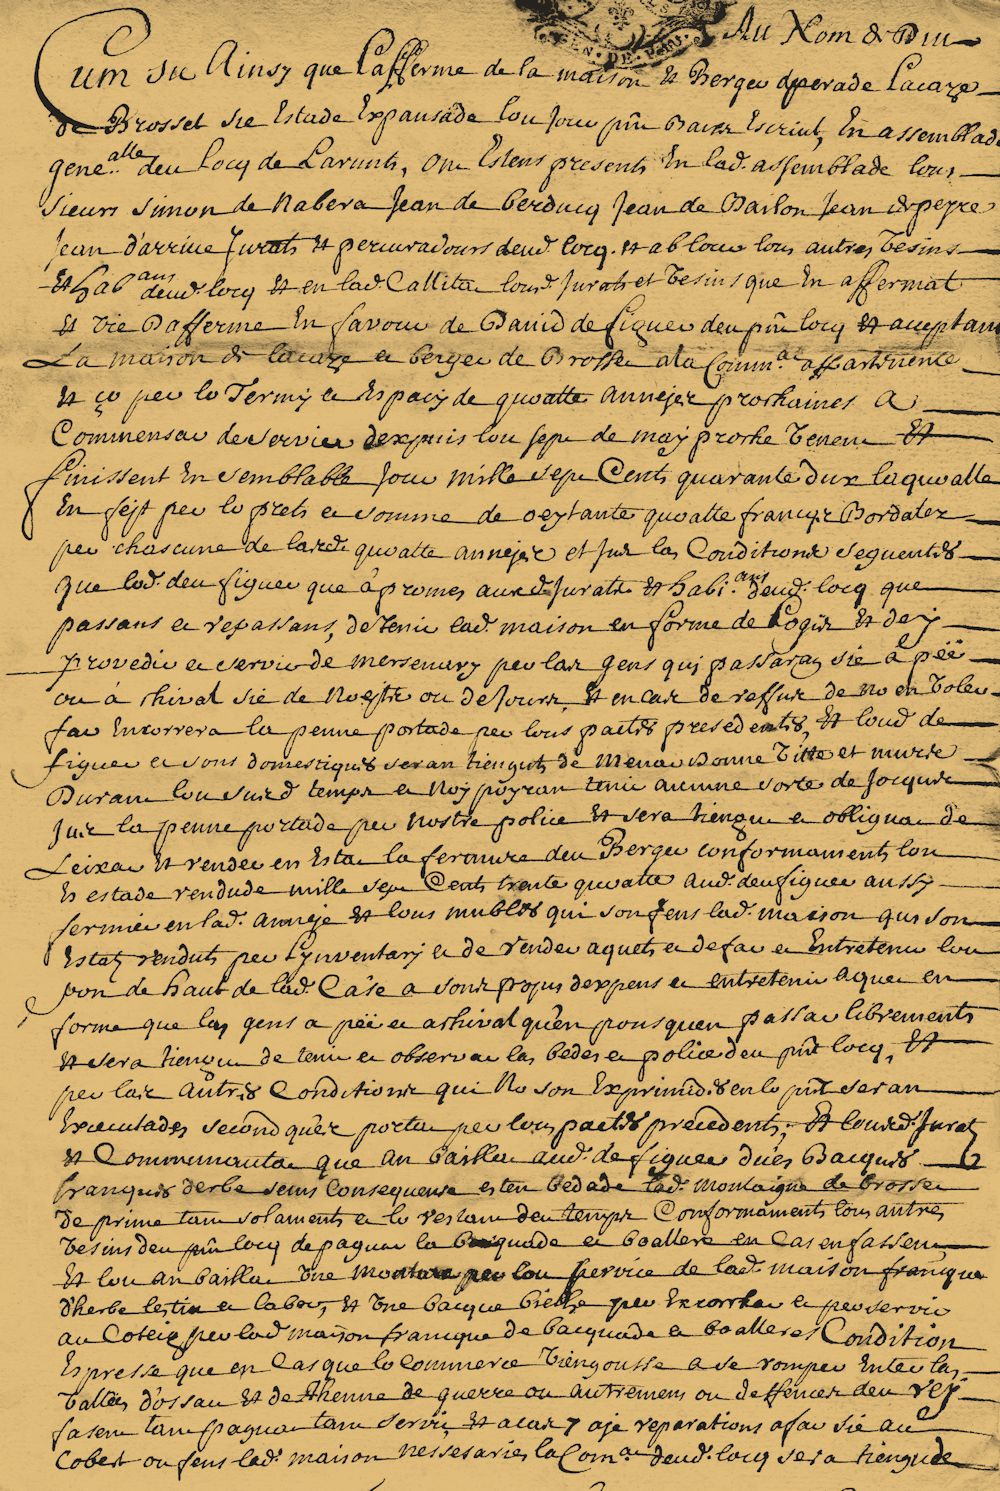 Au Nom de Diu
Cum sie Ainsy que L'afferme de la maison et Berger aperade Lacaze
de Brosset sie Estade Expausade lou jour pñt Davar Escriut, En assemblade
gene.alle deu Locq de Larunts, On Estens presents En lad. assemblade lous
sieurs simon de Nabera Jean de berducq Jean de Darlon Jean de peyre
Jean d'arriue Jurats et percuradours deud. locq. et ab lour lous autres Besins
et habans deud. locq et en lad. Callitat lousd. Jurats et Besins que En affermat
et Bie Dafferme En favour de David de figuer deu pñt locq et acceptant
La maison de lacaze e berger de Brosser a la Comm.at appartenente
et ço per lo Termy e Espacy de quoatte annejes prochaines A
Commensar de servir dexpuis lou sept de may proche Benent et
finissent En semblable jour mille sept Cents quarante dux laquoalle
En feyt per lo prets e somme de oeytante quoatte francxs Bordales
per chascune de lasd. quoatte annejes et sus las Conditions seguentes
que lod. deu figuer que à promes ausd. Jurats et habi.ans deud. locq que
passans e repassans, de tenir lad. maison en forme de Logis et de y
provedir e servir de mersenary per las gens qui passaran sie à pèë
ou à chival sie de Noeyt ou de Jours, et en cas de reffus de no en Boler
far Encorrera la penne portade per lous pactes presedents, et loud. de
figuer e sons domestiques seran tienguts de Menar bonne Bitte et murs
Duran lou susd. temps e Noy poyran tenir aucune sorte de Jocqs
sus la penne portade per nostre police et sera tiengu e obligua de
Leixar et render en Estat la ferrure deu Berger conformaments lou
Es estade rendude mille sept Cents trente quoatte aud. deu figuer aussy
fermier en lad. anneje et lous mubles qui son fens lad. maison qui son
Estatz renduts per l'Inventary e de render aquets e de far e Entretenir lou
pon de haut de lad. Case a sons propis despens e entretenir aquet en
forme que las gens a pèë e a chival qu'en pousquen passar librements
et sera tiengu de tenir e observar las bedes e police deu pñt locq, et
per las autres Conditions qui No son Exprimides en lo pñt seran
Executades second qu'es portat per lous pactes precedents, et lousd. Jurats
et Communautat que an baillat aud. de figuer dues Bacques
franques derbe sens consequense esten bedade lad. montaigne de brosser
de prime tam solaments e lo restant deu temps Conformaments lous autres
Besins deu pñt locq de pagar la Bacquade e boallere en Cas en fassen
et lou an baillat Une Monture per lou service de lad. maison franque
d'herbe lestiu e labor, et Une bacque bielhe per Escorcha e per servir
au Coteig per lad. maison franque de bacquade e boallere et Condition
Espresse que en Cas que lo commerce Biengousse a se romper Enter las
Ballees d'ossau et de thenne de guerre ou autrement ou deffences deu Rey
fasen tam pagar tam servir, et a cas y aje reparations a far sie au
Cobert ou fens lad. maison nessesaries la Com.at deud. locq sera tiengude